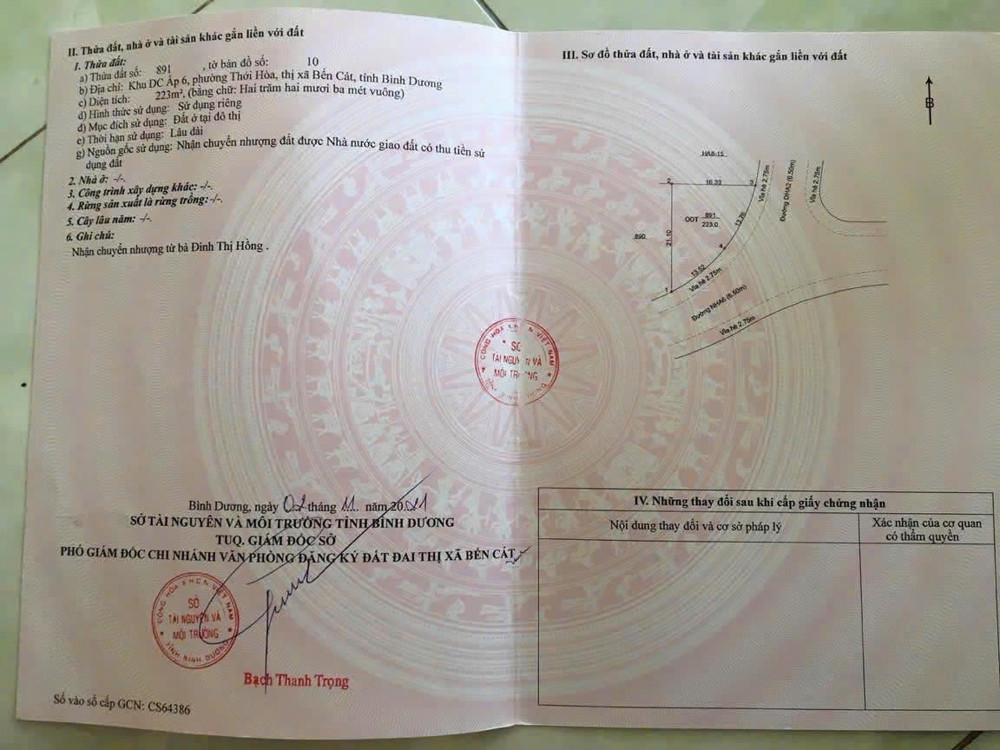 II. Thửa đất, nhà ở và tài sản khác gắn liền với đất
1. Thửa đất:
a) Thửa đất số: 891 , tờ bản đồ số: 10
b) Địa chỉ: Khu DC Ấp 6, phường Thới Hòa, thị xã Bến Cát, tỉnh Bình Dương
c) Diện tích: 223m², (bằng chữ: Hai trăm hai mươi ba mét vuông)
d) Hình thức sử dụng: Sử dụng riêng
đ) Mục đích sử dụng: Đất ở tại đô thị
e) Thời hạn sử dụng: Lâu dài
g) Nguồn gốc sử dụng: Nhận chuyển nhượng đất được Nhà nước giao đất có thu tiền sử
dụng đất
2. Nhà ở: -/-.
3. Công trình xây dựng khác: -/-.
4. Rừng sản xuất là rừng trồng: -/-.
5. Cây lâu năm: -/-.
6. Ghi chú:
Nhận chuyển nhượng từ bà Đinh Thị Hồng .
Bình Dương, ngày 02 tháng 11 năm 2021
SỞ TÀI NGUYÊN VÀ MÔI TRƯỜNG TỈNH BÌNH DƯƠNG
TUQ. GIÁM ĐỐC SỞ
PHÓ GIÁM ĐỐC CHI NHÁNH VĂN PHÒNG ĐĂNG KÝ ĐẤT ĐAI THỊ XÃ BẾN CÁT
CỘNG HÒA X.H.C.N VIỆT NAM
SỞ
TÀI NGUYÊN VÀ
MÔI TRƯỜNG
TỈNH BÌNH DƯƠNG
Bạch Thanh Trọng
Số vào sổ cấp GCN: CS64386
III. Sơ đồ thửa đất, nhà ở và tài sản khác gắn liền với đất
B
HA6-15
2
16.33
3
Vỉa hè 2.75m
Đường DHA2 (6.50m)
Vỉa hè 2.75m
ODT
891
223.0
13.76
890
21.10
4
13.52
1
Vỉa hè 2.75m
Đường NHA6 (6.50m)
Vỉa hè 2.75m
CỘNG HÒA X.H.C.N VIỆT NAM
SỞ
TÀI NGUYÊN VÀ
MÔI TRƯỜNG
TỈNH BÌNH DƯƠNG
IV. Những thay đổi sau khi cấp giấy chứng nhận
Nội dung thay đổi và cơ sở pháp lý
Xác nhận của cơ quan
có thẩm quyền